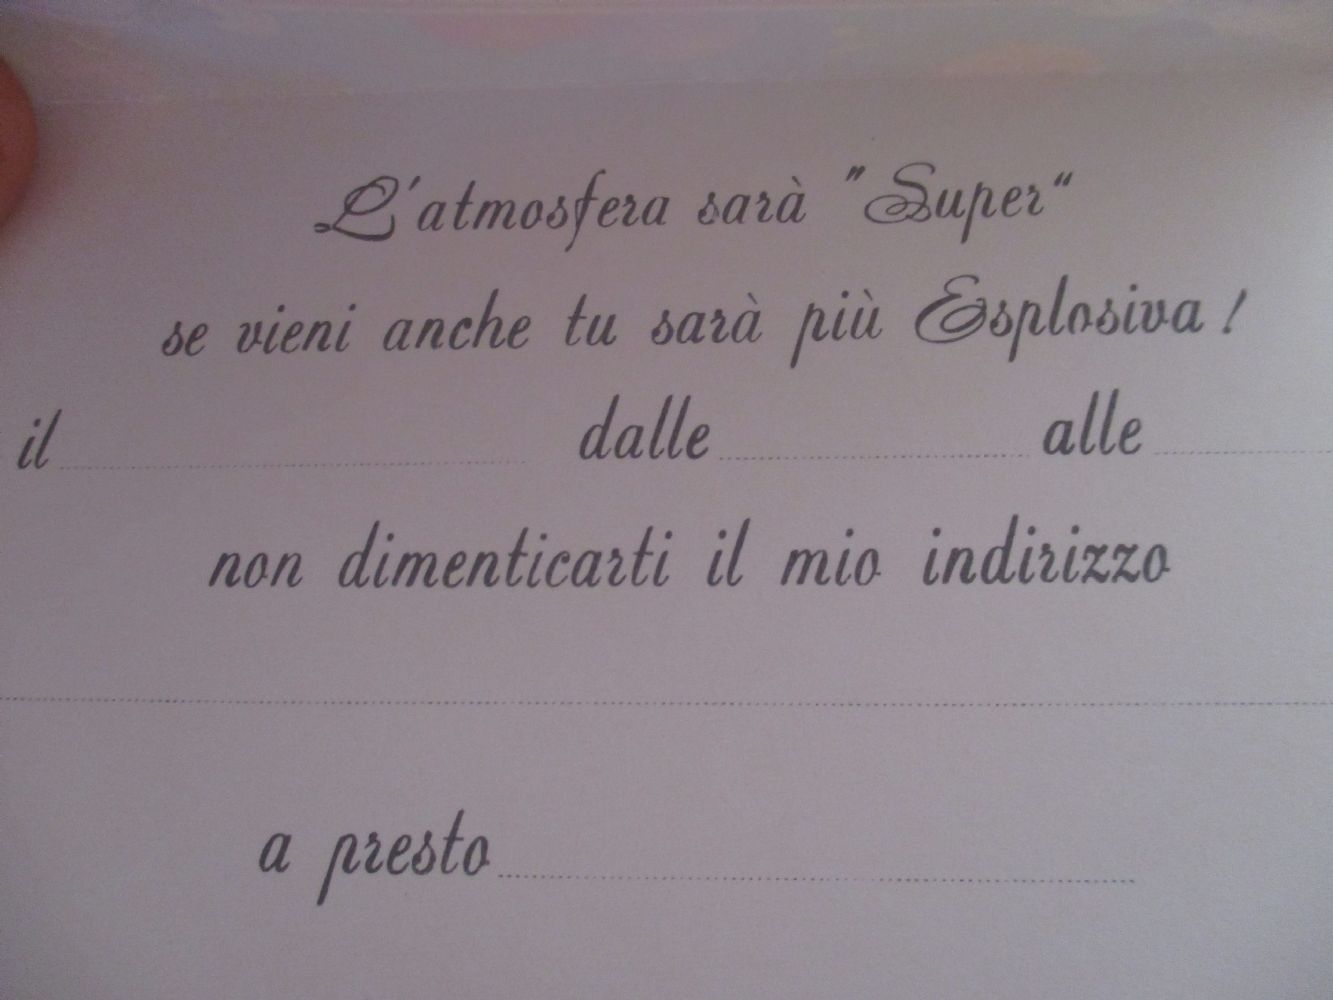 L'atmosfera sarà "Super"
se vieni anche tu sarà più Esplosiva!
il dalle alle
non dimenticarti il mio indirizzo
a presto